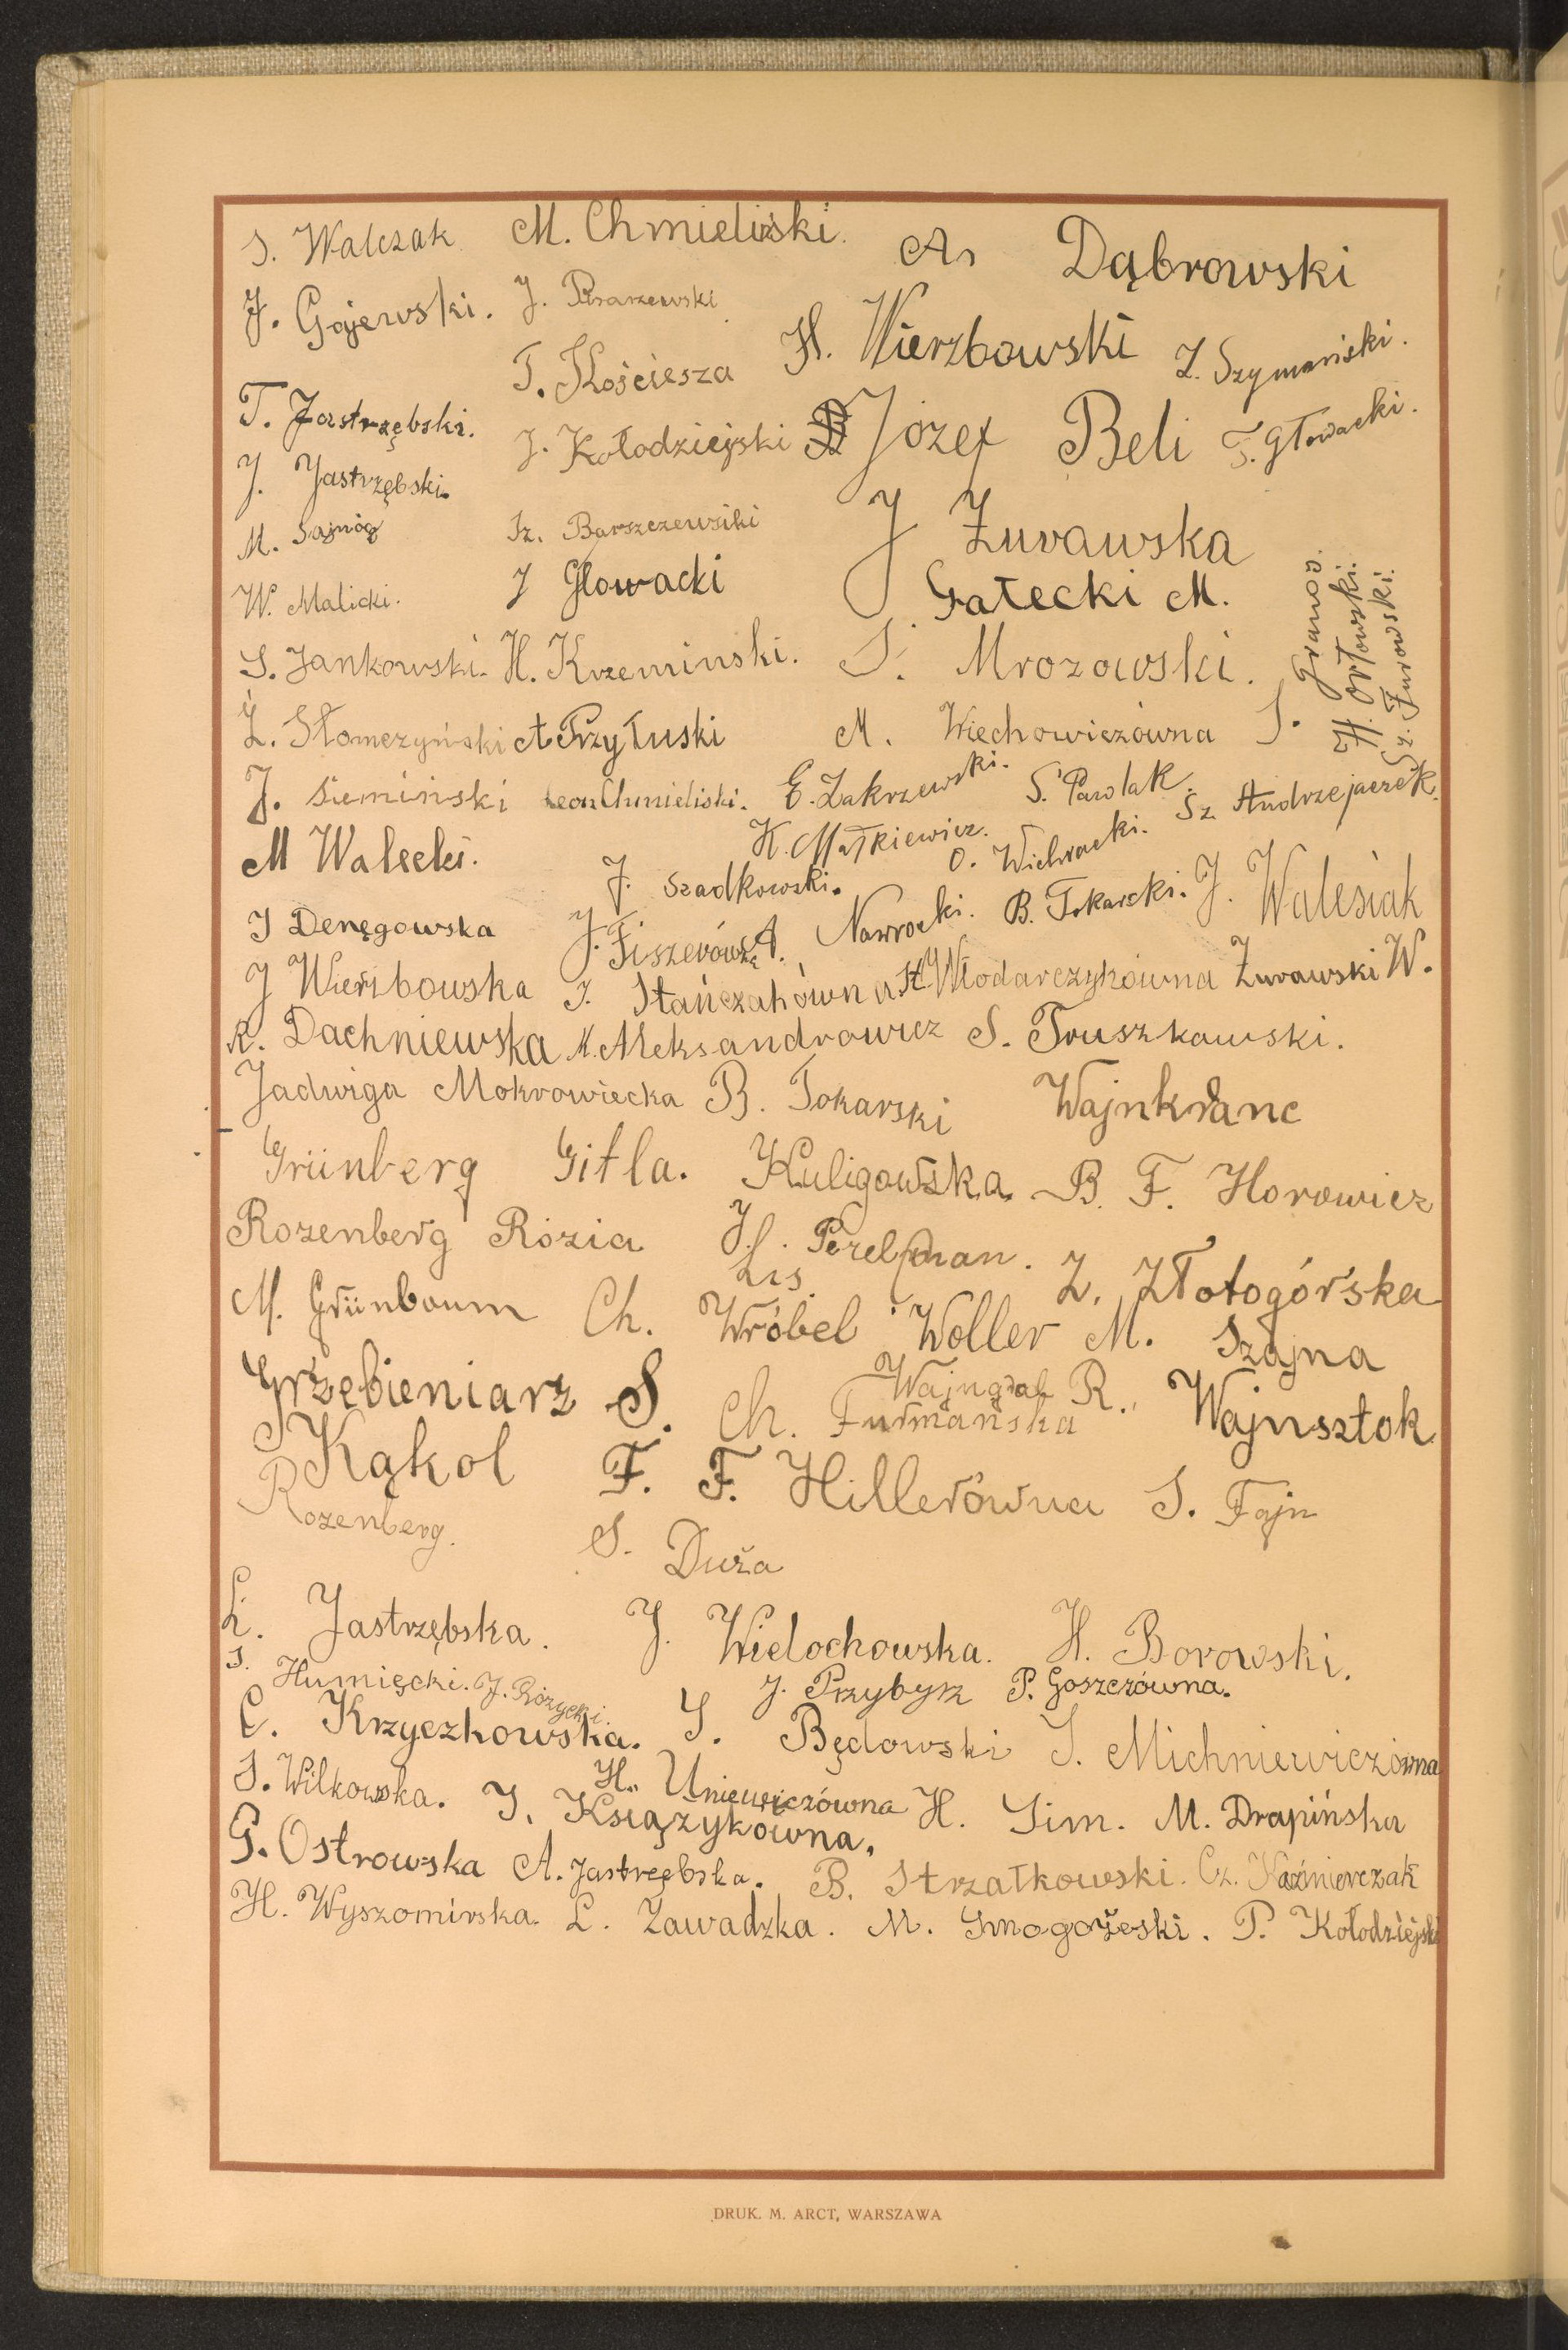 S. Walczak M. Chmieliński. A. Dąbrowski
J. Gajewski. J.
T. Kościesza H. Wierzbowski Z. Szymański.
T. Jastrzębski. J. Kołodziejski Józef Beli F. Głowacki.
J. Jastrzębski.
M. Sajnóg Sz. Barszczewsiki J Żurawska
W. Malicki. J Glowacki Gałecki M.
S. Jankowski. H. Krzeminski. S. Mrozowski.
S. Franos.
H. Orłowski.
Sz. Żurowski.
Ł. Słomczyński A Przyłuski M. Wiechowiczówna
J. Siemiński Leon Chmieliski. E. Zakrzewski. S. Pawlak. Sz. Andrzejaczek.
M Walecki. K. Małkiewicz. O. Wichrocki.
J. Szadkowski.
J Denęgowska J. Fiszerówna A. Nawrocki. B. Tokarski. J. Walesiak
J Wierzbowska J. Stańczakówna H Włodarczykówna Żurawski W.
R. Dachniewska M. Aleksandrowicz S. Truszkowski.
Jadwiga Mokrowiecka B. Tokarski Wajnkranc
Grünberg Gitla. Kuligowska B. F. Horowicz
Rozenberg Rózia J. Perelman.
Lis. Z. Złotogórska
M. Grünbaum Ch. Wróbel Woller M. Szajna
Grzebieniarz S. Ch. Furmańska R. Wajnsztok
Kąkol F. F. Hillerówna S. Fajn
Rozenberg. S. Duża
L. Jastrzębska. J. Wielochowska. H. Borowski.
S. Humięcki. J. Różycki. J. Przybysz P. Goszczówna.
C. Krzyczkowska. S. Będowski J. Michniewiczówna
S. Wilkowska. H. Uniewiczówna H. Sim. M. Drapińska
J. Książykówna.
G. Ostrowska A. Jastrzębska. B. Strzałkowski. Cz. Kaźmierczak
H. Wyszomirska. L. Zawadzka. M. Smogorzeski. P. Kołodziejski
DRUK. M. ARCT, WARSZAWA